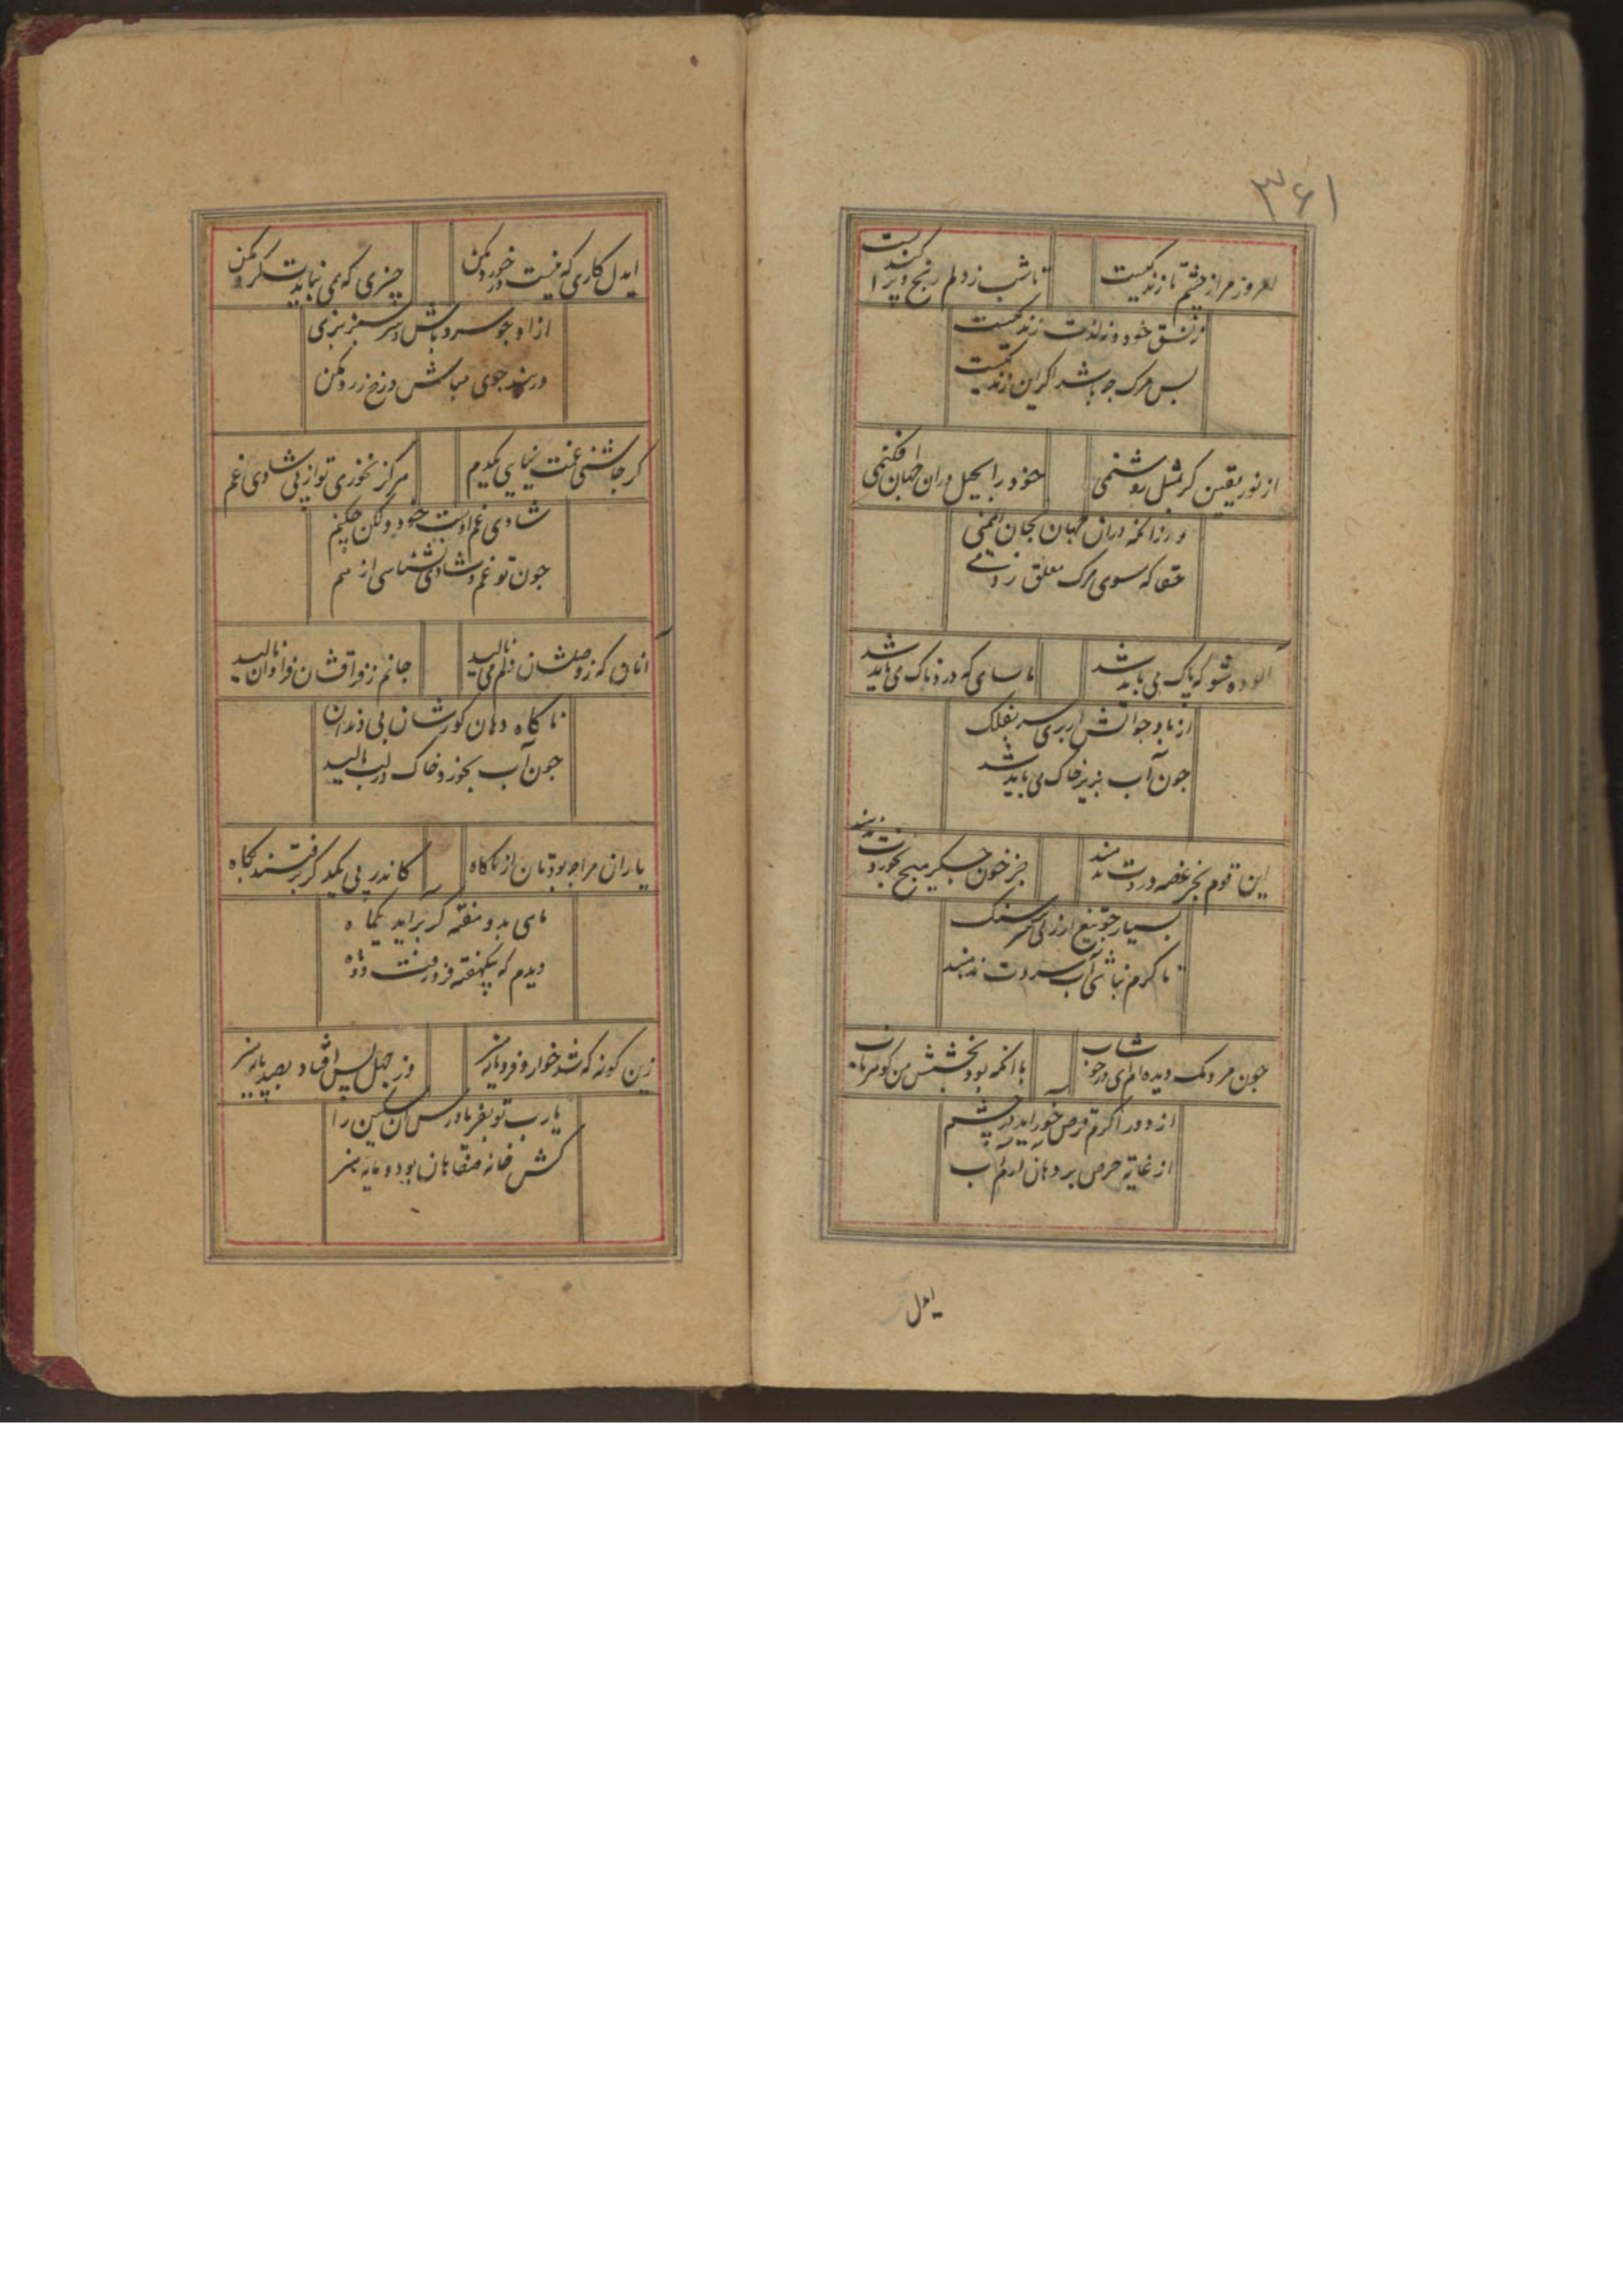 ۳۶۱
امروز مرا ز خشم تا زندگیست
تا شب ز دلم رنج و پراکندگیست
خود و ز لذت زندگیست
بس مرک چو باشد اکر این زندکیست
از نور یقین کر مثل روشنمی
خود را بحیل دران جهان افکنمی
ور زانکه دران جهان بجان ایمنمی
حقا که سوی مرک معلق زنمی
الوده مشو که پاک می باید شد
که درد ناک می باید شد
از باد جوانیش ار بری سر بفلک
چون آب بزیر خاک می باید شد
این قوم بجز غصه و دردت ندهند
جز خون جکر هیچ بخوردت ندهند
بسیار چو تیغ ار زنی سر سنک
تا کرم نباشی آب سردت ندهند
چون مردمک دیده ام ای در خوشاب
با انکه بود بخشش من کوهر ناب
از دور اکرم قرص خور اید در چشم
از غایة حرص بر دهان ارم آب
ایدل
ایدل کاری که نیست در خورد مکن
چیزی که نمی بایدت کرد مکن
ازاد چو سرو باش و سر سبز بزی
در بند جوی مباش و رخ زرد مکن
کر چاشنی غمت نیابی یکدم
هرکز نخوری تو از پی شادی غم
شادی غم اوست خود ولکن چکنم
چون تو غم و شادی نشناسی از هم
انان که ز وصلشان دلم می نالید
جانم ز فراقشان فراوان نالید
ناکاه دهان کورشان بی دندان
چون آب بخورد و خاک در لب مالید
یاران مرا چه بودتان از ناکاه
کاندر پی یکدکر برفتند بکاه
ماهی بدو هفته کر براید یکماه
دیدم که بیکهفته فرو رفت دو ماه
زین کونه که شد خوار و فرومایه هنر
وز جهل پس افتاد بصد پایه هنر
یا رب تو بفریاد رس آن مسکین را
کش خانه صفاهان بود و مایه هنر